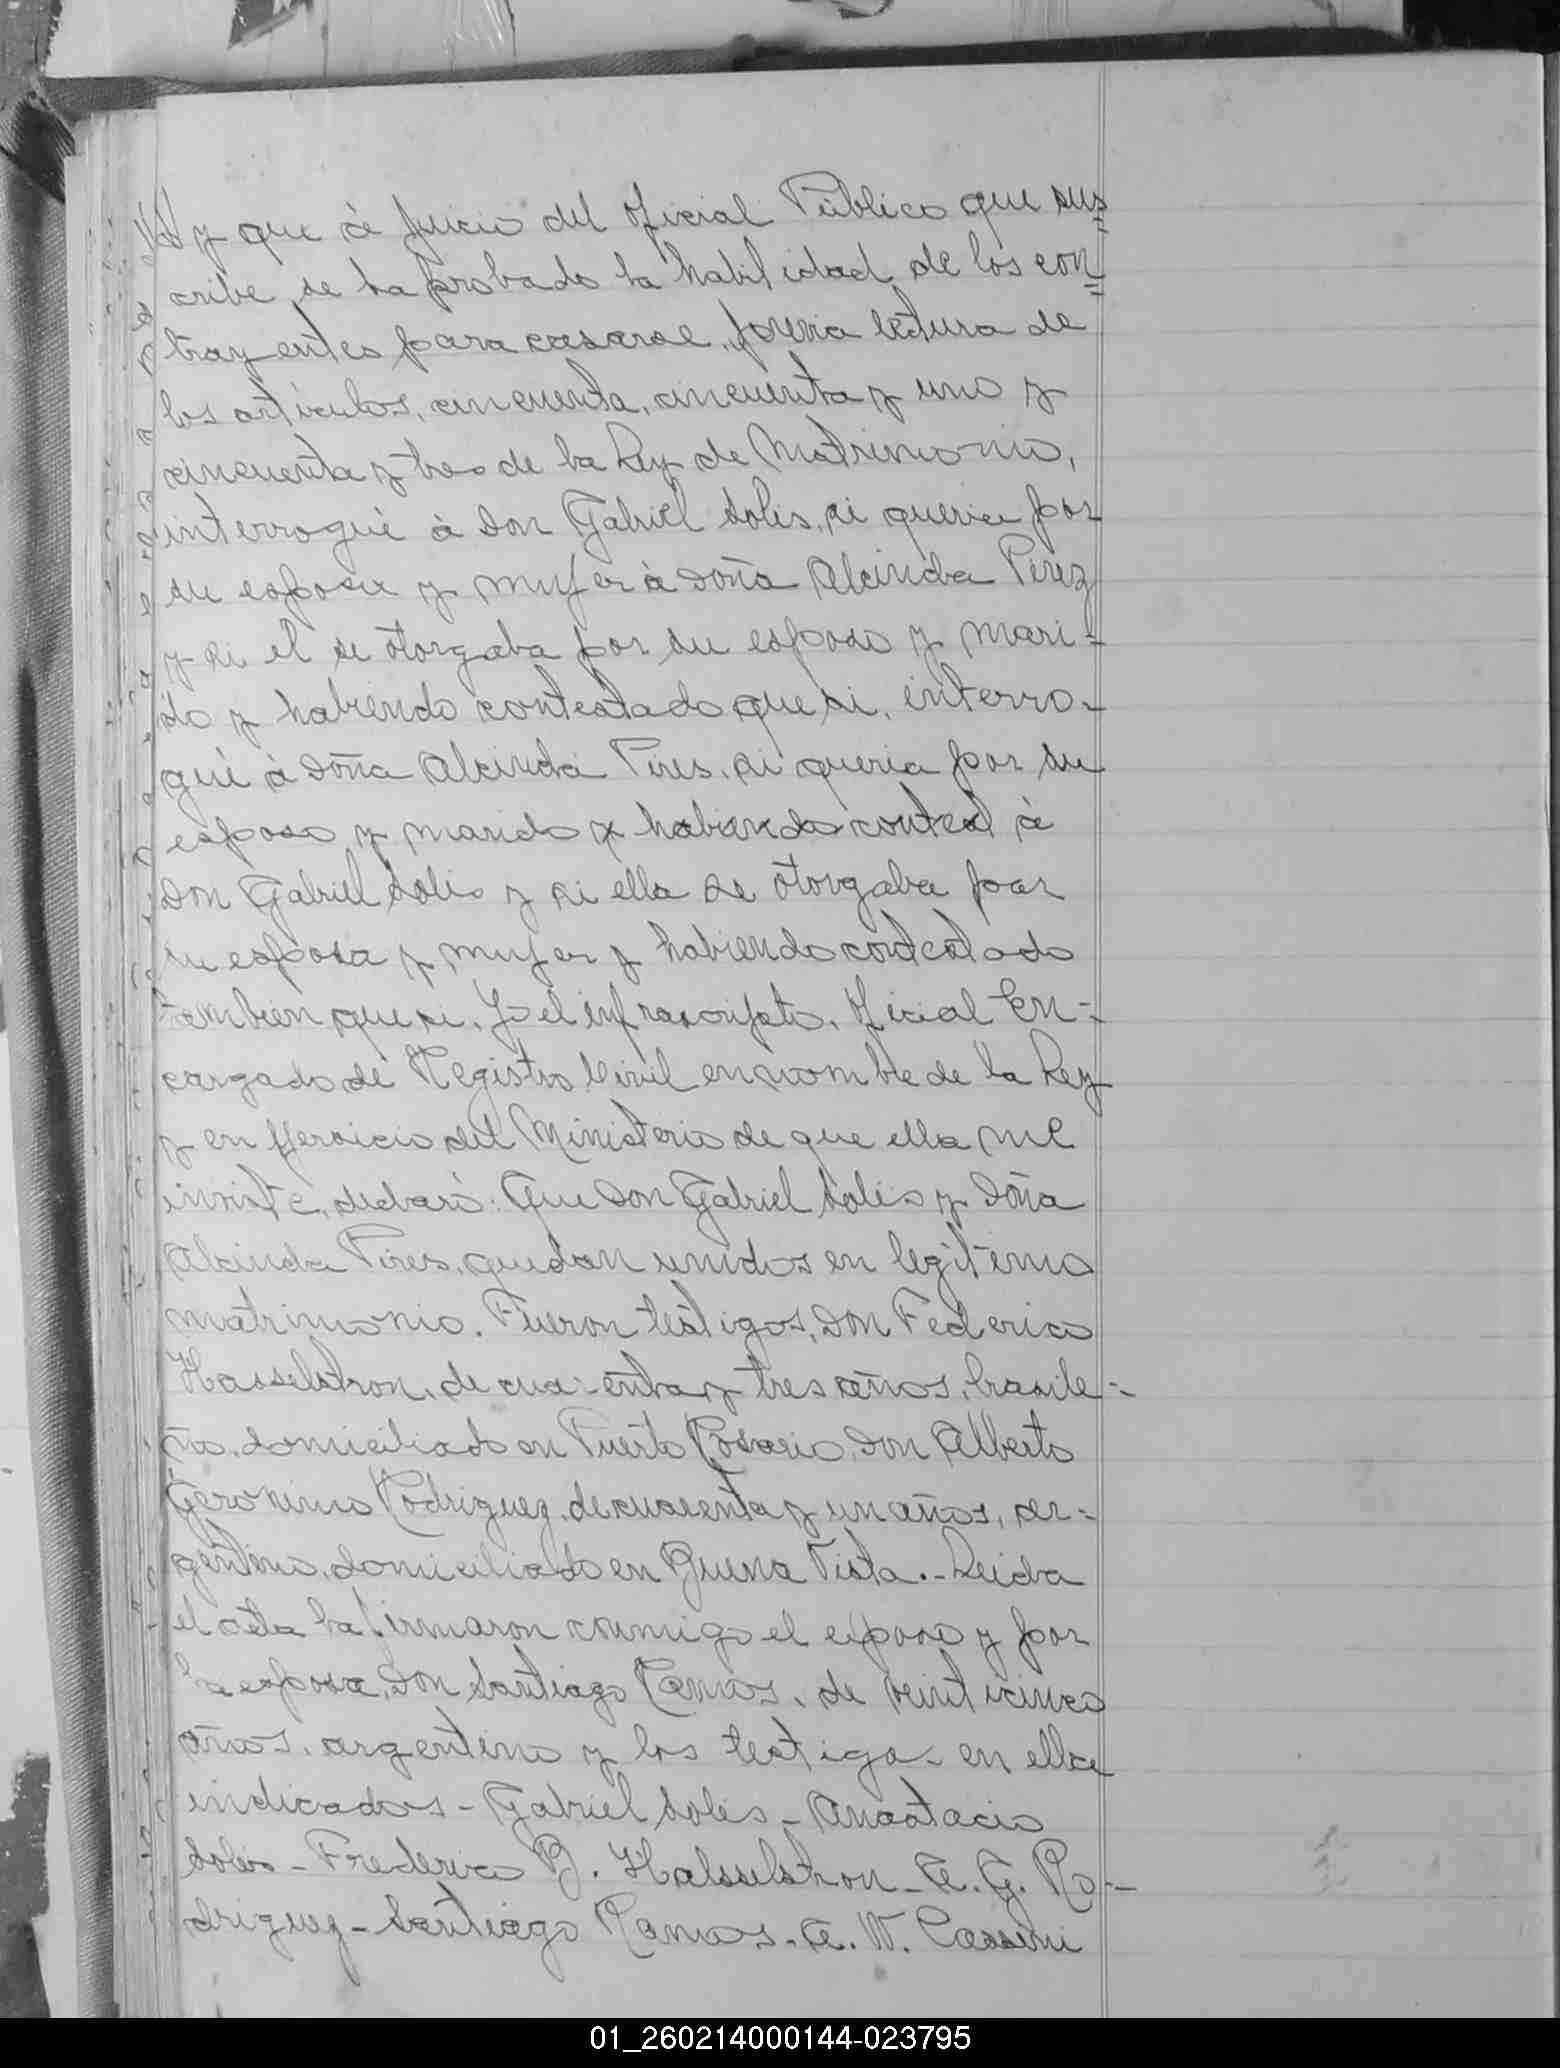 y que à juicio del Oficial Público que sus=
cribe, se ha probado la habilidad de los con=
trayentes para casarse, previa lectura de
los artículos, cincuenta, cincuenta y uno y
cincuenta y tres de la Ley de Matrimonio,
interrogué à Don Gabriel Solis, si queria por
su esposa y mujer à Doña Alcinda Pirez
y si el se otorgaba por su esposo y mari-
do y habiendo contestado que si, interro-
gué à Doña Alcinda Pires, si queria por su
esposo y marido y habiendo contest à
Don Gabriel Solis y si ella se otorgaba por
su esposa y mujer y habiendo contestado
tambien que si, Yo el infrascripto, Oficial En-
cargado de Registro Civil en nombre de la Ley
y en ejercicio del Ministerio de que ella me
inviste, declaró: Que Don Gabriel Solis y Doña
Alcinda Pires, quedan unidos en legitimo
matrimonio. Fueron testigos, Don Federico
Hasselstron, de cuarenta y tres años, brasile-
ño, domiciliado en Puerto Rosario, Don Alberto
Geronimo Rodriguez, de cuarenta y un años, ar-
gentino, domiciliado en Buena Vista.- Leida
el acta la firmaron conmigo el esposo y por
la esposa, Don Santiago Ramos, de veinticinco
años, argentino y los testigos en ella
indicados - Gabriel Solis - Anastacio
Solis - Frederico B. Halsselstron - A. G. Ro-
driguez - Santiago Ramos - A. W. Cassini
01_260214000144-023795